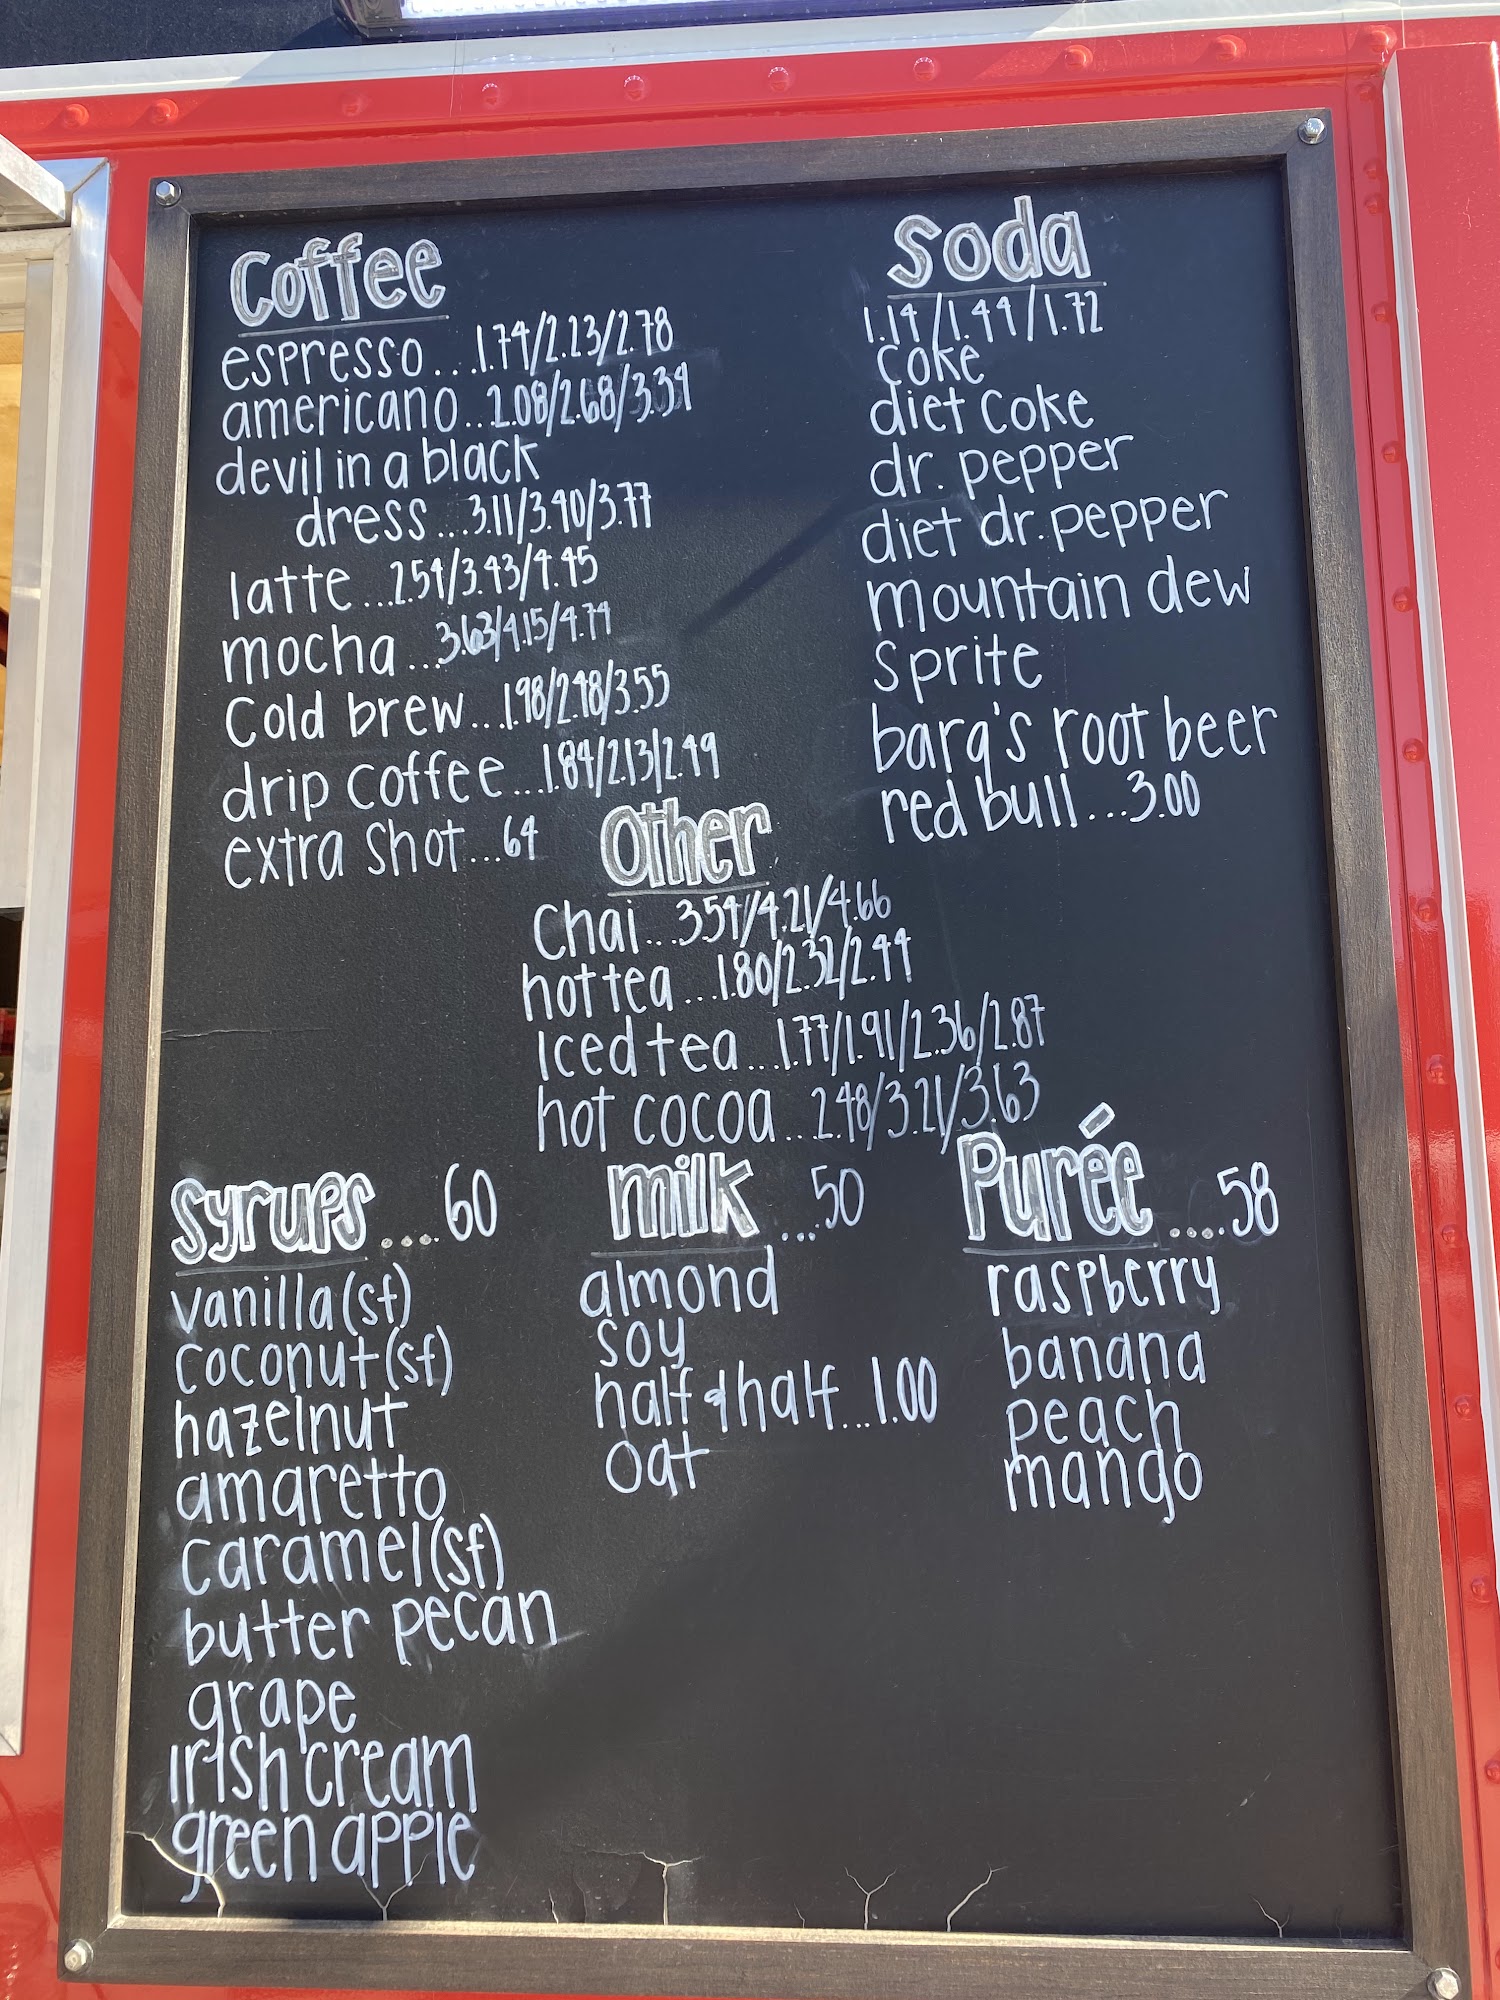 Coffee
espresso...1.74/2.23/2.78
americano...2.08/2.68/3.39
devil in a black
dress...3.11/3.40/3.77
latte...2.54/3.43/4.45
mocha...3.63/4.15/4.74
Cold brew...1.98/2.48/3.55
drip coffee...1.84/2.13/2.49
extra shot...64
Soda
1.14/1.44/1.72
coke
diet coke
dr. pepper
diet dr. pepper
mountain dew
sprite
barq's root beer
red bull...3.00
Other
Chai...3.54/4.21/4.66
hot tea...1.80/2.32/2.44
Iced tea...1.77/1.91/2.36/2.87
hot cocoa...2.48/3.21/3.63
Syrups....60
vanilla (sf)
coconut (sf)
hazelnut
amaretto
caramel (sf)
butter pecan
grape
irish cream
green apple
milk....50
almond
soy
half & half...1.00
oat
Purée....58
raspberry
banana
peach
mango